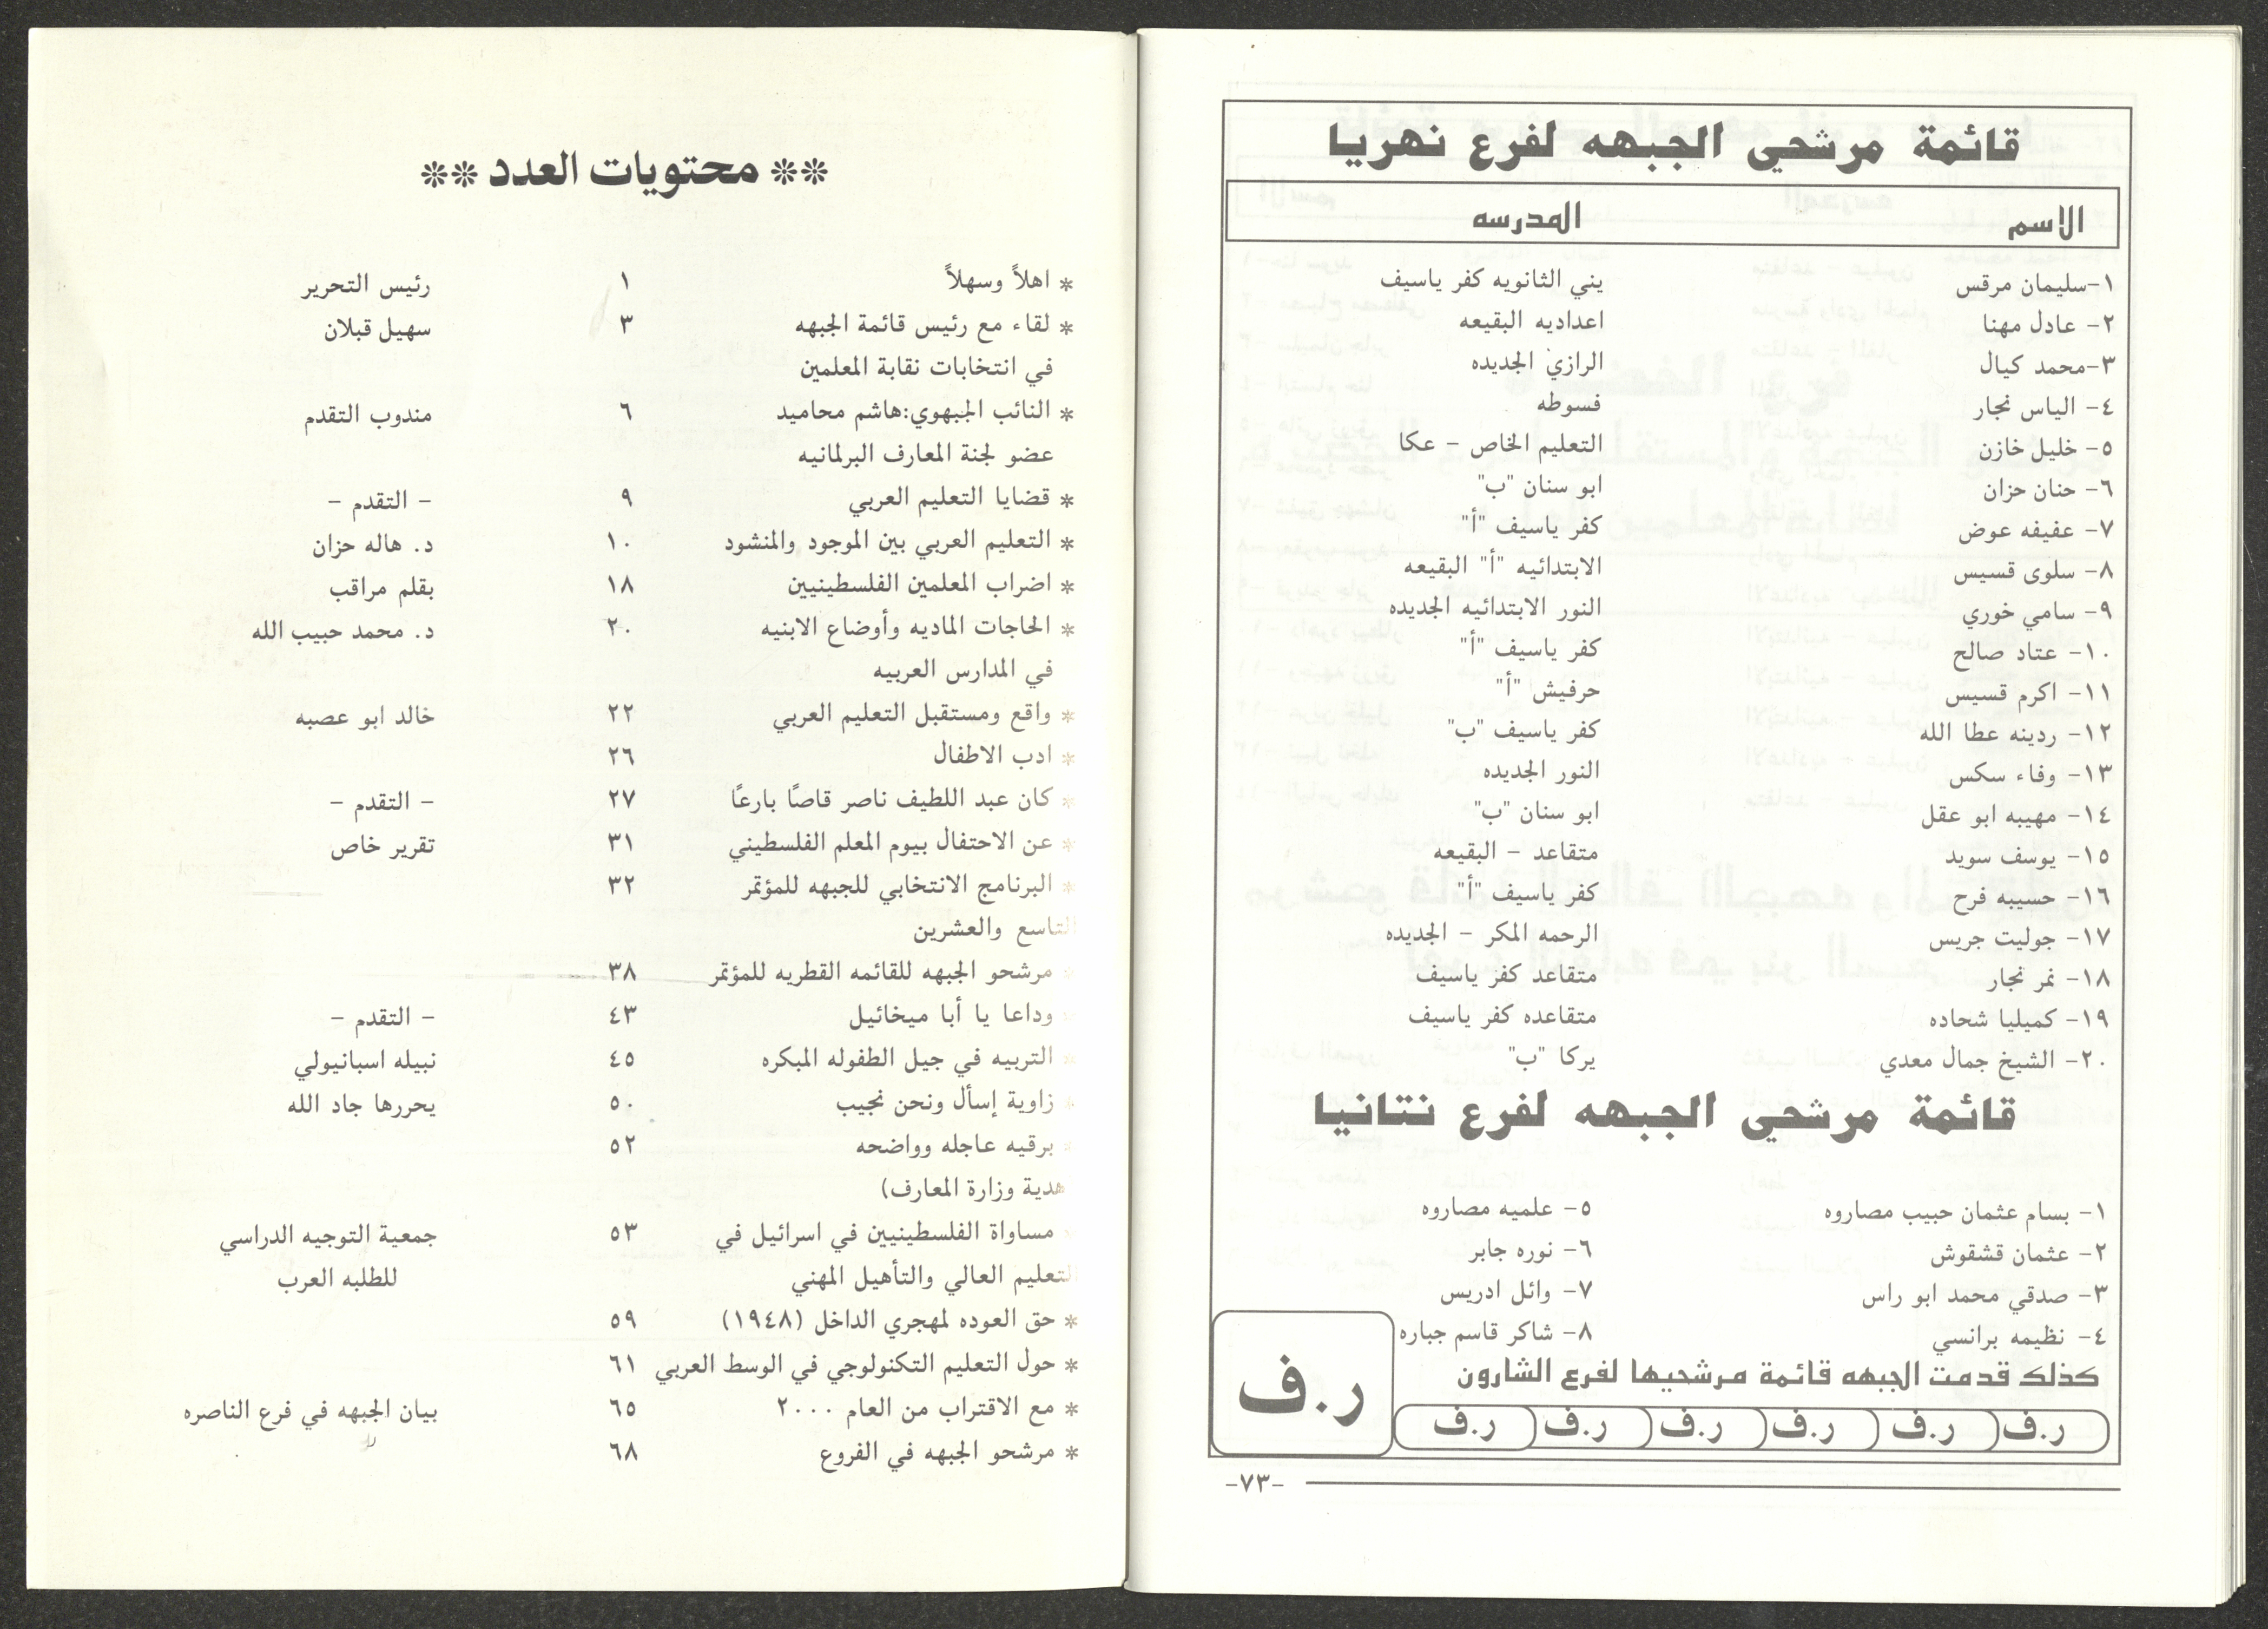 قائمة مرشحي الجبهه لفرع نهريا
الاسم المدرسه
١-سليمان مرقس يني الثانويه كفر ياسيف
٢- عادل مهنا اعداديه البقيعه
٣-محمد كيال الرازي الجديده
٤- الياس نجار فسوطه
٥- خليل خازن التعليم الخاص - عكا
٦- حنان حزان ابو سنان "ب"
٧- عفيفه عوض كفر ياسيف "أ"
٨- سلوى قسيس الابتدائيه "أ" البقيعه
٩- سامي خوري النور الابتدائيه الجديده
١٠- عتاد صالح كفر ياسيف "أ"
١١- اكرم قسيس حرفيش "أ"
١٢- ردينه عطا الله كفر ياسيف "ب"
١٣- وفاء سكس النور الجديده
١٤- مهيبه ابو عقل ابو سنان "ب"
١٥- يوسف سويد متقاعد - البقيعه
١٦- حسيبه فرح كفر ياسيف "أ"
١٧- جوليت جريس الرحمه المكر - الجديده
١٨- نمر نجار متقاعد كفر ياسيف
١٩- كميليا شحاده متقاعده كفر ياسيف
٢٠- الشيخ جمال معدي يركا "ب"
قائمة مرشحي الجبهه لفرع نتانيا
١- بسام عثمان حبيب مصاروه ٥- علميه مصاروه
٢- عثمان قشقوش ٦- نوره جابر
٣- صدقي محمد ابو راس ٧- وائل ادريس
٤- نظيمه برانسي ٨- شاكر قاسم جباره
كذلك قدمت الجبهه قائمة مرشحيها لفرع الشارون
ر.ف
ر.ف ر.ف ر.ف ر.ف ر.ف ر.ف
-٧٣-
** محتويات العدد **
* اهلاً وسهلاً ١ رئيس التحرير
* لقاء مع رئيس قائمة الجبهه ٣ سهيل قبلان
في انتخابات نقابة المعلمين
* النائب الجبهوي:هاشم محاميد ٦ مندوب التقدم
عضو لجنة المعارف البرلمانيه
* قضايا التعليم العربي ٩ - التقدم -
* التعليم العربي بين الموجود والمنشود ١٠ د. هاله حزان
* اضراب المعلمين الفلسطينيين ١٨ بقلم مراقب
* الحاجات الماديه وأوضاع الابنيه ٢٠ د. محمد حبيب الله
في المدارس العربيه
* واقع ومستقبل التعليم العربي ٢٢ خالد ابو عصبه
* ادب الاطفال ٢٦
* كان عبد اللطيف ناصر قاصًا بارعًا ٢٧ - التقدم -
* عن الاحتفال بيوم المعلم الفلسطيني ٣١ تقرير خاص
* البرنامج الانتخابي للجبهه للمؤتمر ٣٢
التاسع والعشرين
* مرشحو الجبهه للقائمه القطريه للمؤتمر ٣٨
* وداعا يا أبا ميخائيل ٤٣ - التقدم -
* التربيه في جيل الطفوله المبكره ٤٥ نبيله اسبانيولي
* زاوية إسأل ونحن نجيب ٥٠ يحررها جاد الله
* برقيه عاجله وواضحه ٥٢
هدية وزارة المعارف)
* مساواة الفلسطينيين في اسرائيل في ٥٣ جمعية التوجيه الدراسي
التعليم العالي والتأهيل المهني للطلبه العرب
* حق العوده لمهجري الداخل (١٩٤٨) ٥٩
* حول التعليم التكنولوجي في الوسط العربي ٦١
* مع الاقتراب من العام ٢٠٠٠ ٦٥ بيان الجبهه في فرع الناصره
* مرشحو الجبهه في الفروع ٦٨